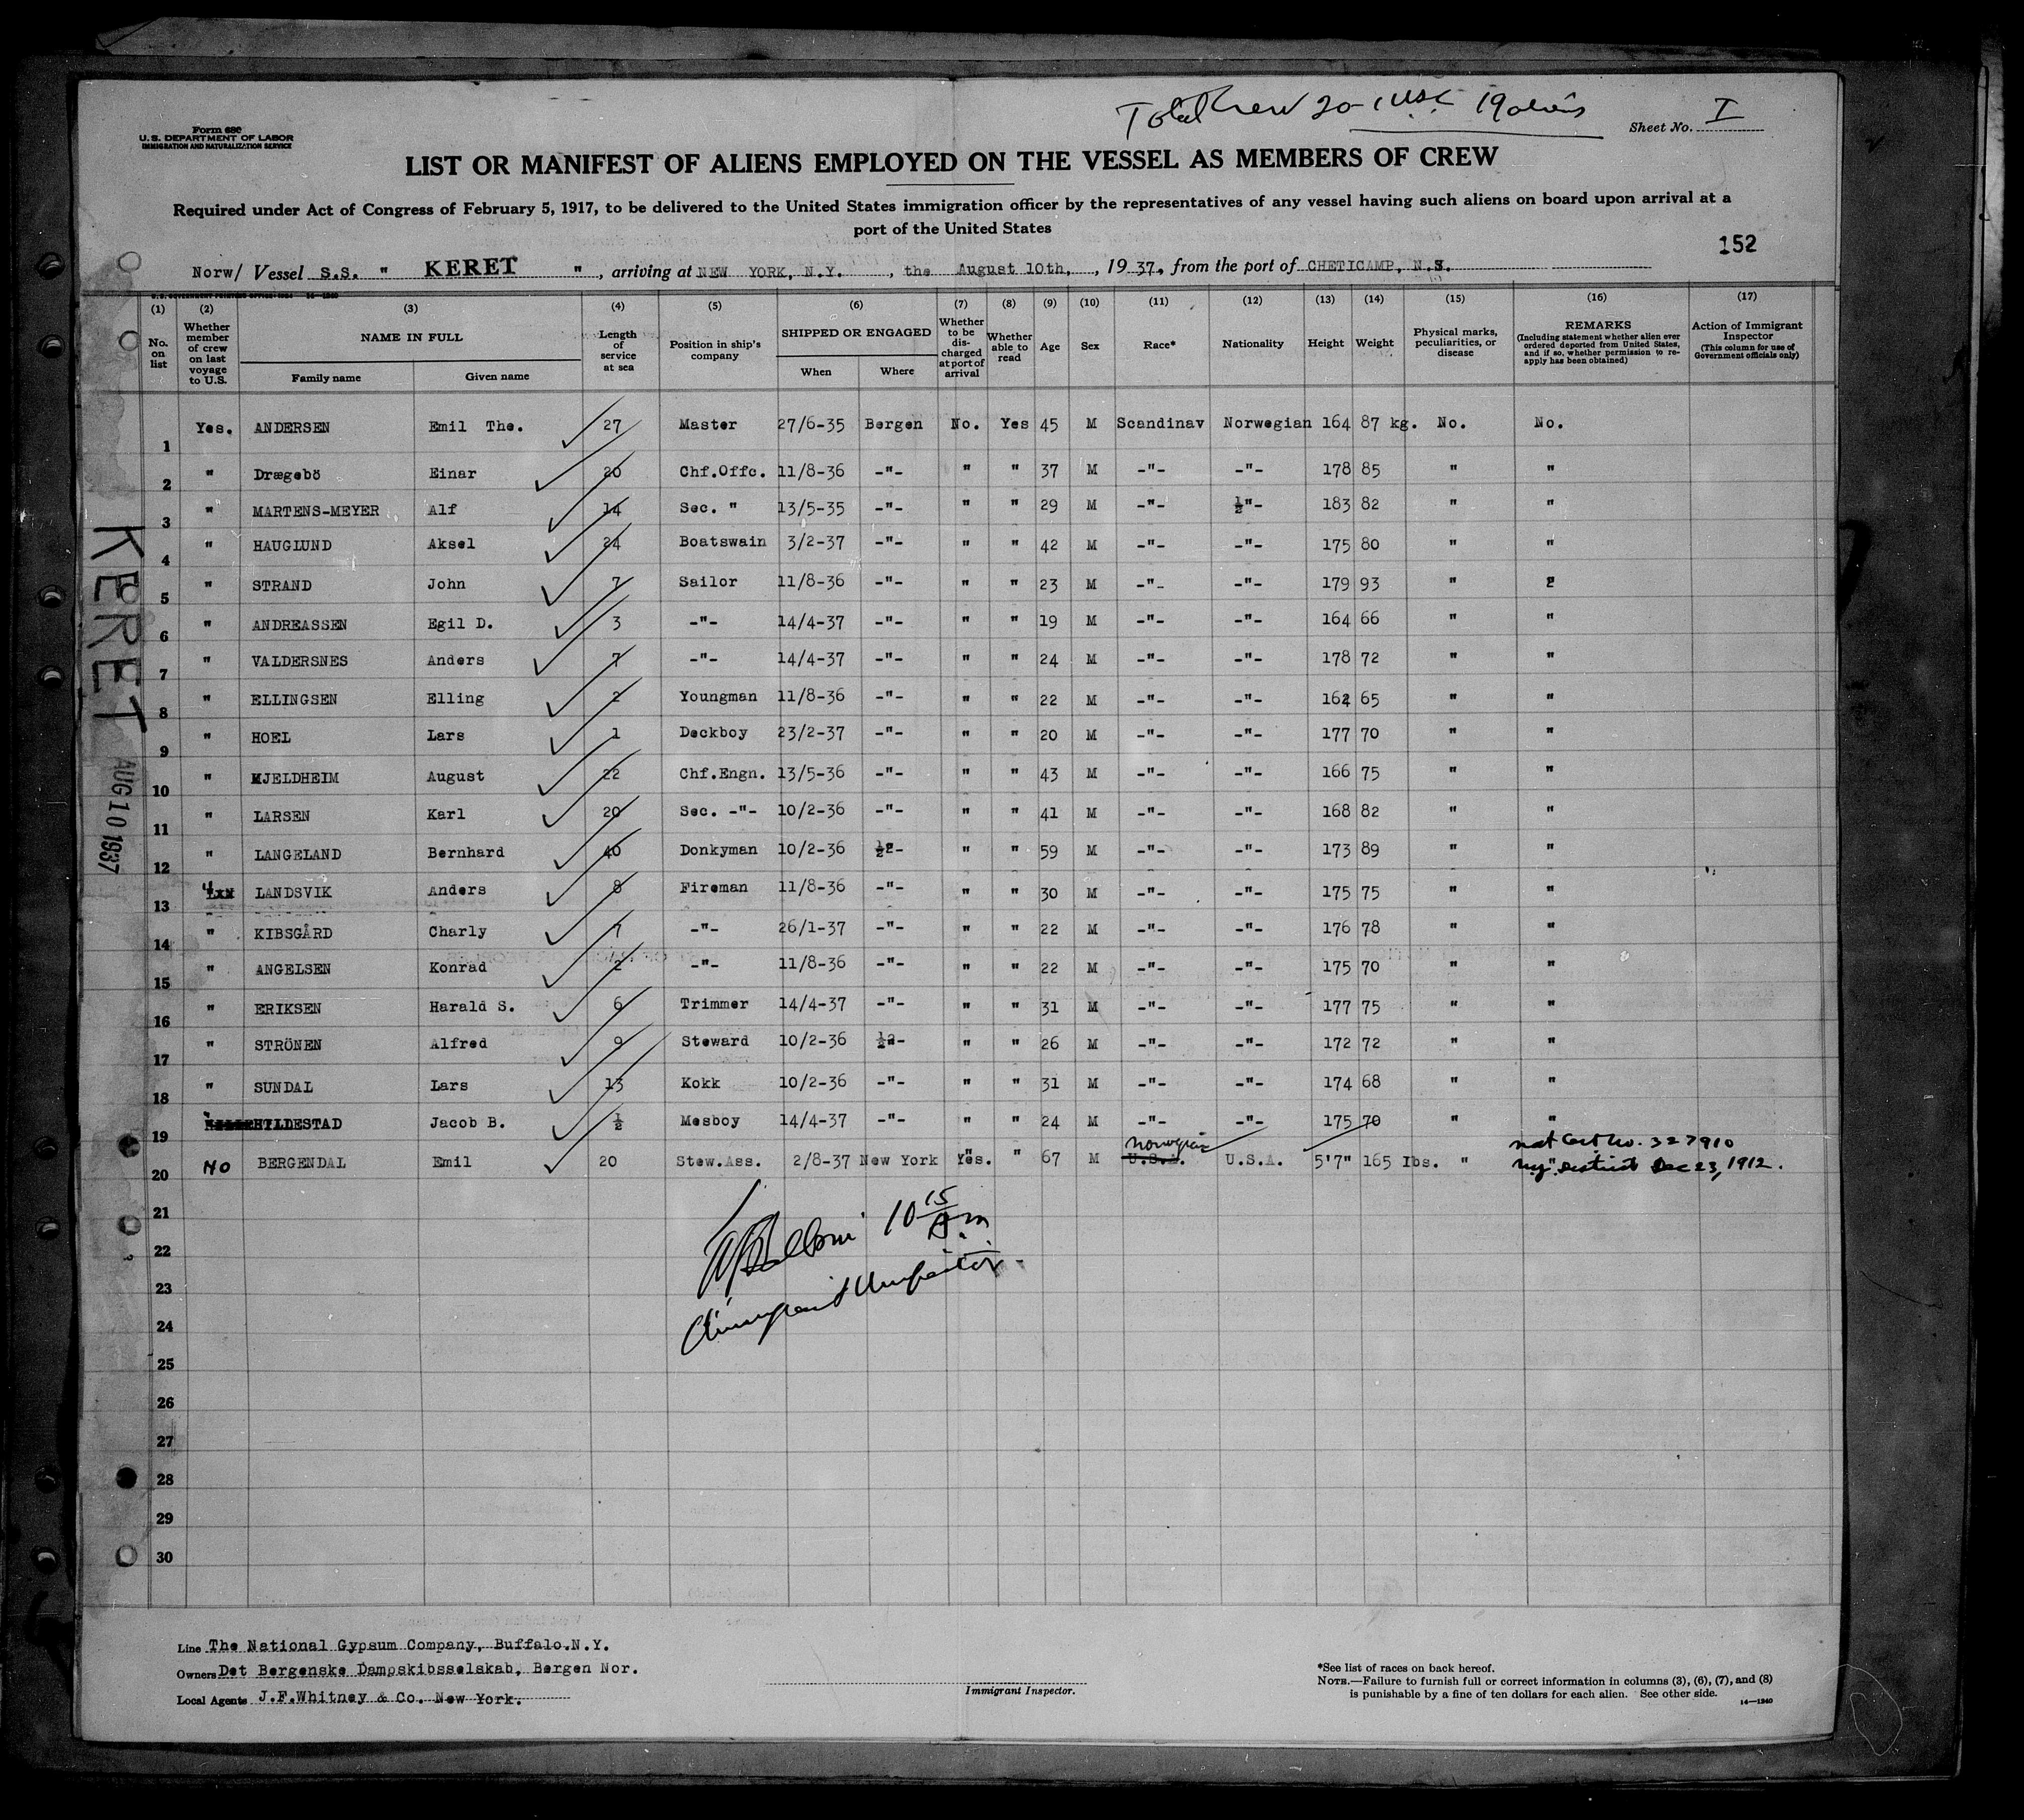 Total Crew 20 - 1 USC 19 aliens
Form 680
U. S. DEPARTMENT OF LABOR
IMMIGRATION AND NATURALIZATION SERVICE
Sheet No. I
LIST OR MANIFEST OF ALIENS EMPLOYED ON THE VESSEL AS MEMBERS OF CREW
Required under Act of Congress of February 5, 1917, to be delivered to the United States immigration officer by the representatives of any vessel having such aliens on board upon arrival at a
port of the United States
152
Norw/ Vessel S.S. " KERET ", arriving at NEW YORK, N.Y., the August 10th, , 1937, from the port of CHETICAMP, N.S.
(1) (2) (3) (4) (5) (6) (7) (8) (9) (10) (11) (12) (13) (14) (15) (16) (17)
No. on list
Whether member of crew on last voyage to U.S.
NAME IN FULL
Family name
Given name
Length of service at sea
Position in ship's company
SHIPPED OR ENGAGED
When
Where
Whether to be discharged at port of arrival
Whether able to read
Age
Sex
Race*
Nationality
Height
Weight
Physical marks, peculiarities, or disease
REMARKS
(Including statement whether alien ever ordered deported from United States, and if so, whether permission to reapply has been obtained)
Action of Immigrant Inspector
(This column for use of Government officials only)
1 Yes. ANDERSEN Emil The. 27 Master 27/6-35 Bergen No. Yes 45 M Scandinav Norwegian 164 87 kg. No. No.
2 " Drægebö Einar 20 Chf.Offc. 11/8-36 -"- " " 37 M -"- -"- 178 85 " "
3 " MARTENS-MEYER Alf 14 Sec. " 13/5-35 -"- " " 29 M -"- ½"- 183 82 " "
4 " HAUGLUND Aksel 24 Boatswain 3/2-37 -"- " " 42 M -"- -"- 175 80 " "
5 " STRAND John 7 Sailor 11/8-36 -"- " " 23 M -"- -"- 179 93 " 2
6 " ANDREASSEN Egil D. 3 -"- 14/4-37 -"- " " 19 M -"- -"- 164 66 " "
7 " VALDERSNES Anders 7 -"- 14/4-37 -"- " " 24 M -"- -"- 178 72 " "
8 " ELLINGSEN Elling 2 Youngman 11/8-36 -"- " " 22 M -"- -"- 162 65 " "
9 " HOEL Lars 1 Deckboy 23/2-37 -"- " " 20 M -"- -"- 177 70 " "
10 " KJELDHEIM August 22 Chf.Engn. 13/5-36 -"- " " 43 M -"- -"- 166 75 " "
11 " LARSEN Karl 20 Sec. -"- 10/2-36 -"- " " 41 M -"- -"- 168 82 " "
12 " LANGELAND Bernhard 40 Donkyman 10/2-36 ½2- " " 59 M -"- -"- 173 89 " "
13 " LANDSVIK Anders 8 Fireman 11/8-36 -"- " " 30 M -"- -"- 175 75 " "
14 " KIBSGÅRD Charly 7 -"- 26/1-37 -"- " " 22 M -"- -"- 176 78 " "
15 " ANGELSEN Konrad 2 -"- 11/8-36 -"- " " 22 M -"- -"- 175 70 " "
16 " ERIKSEN Harald S. 6 Trimmer 14/4-37 -"- " " 31 M -"- -"- 177 75 " "
17 " STRÖNEN Alfred 9 Steward 10/2-36 ½2- " " 26 M -"- -"- 172 72 " "
18 " SUNDAL Lars 13 Kokk 10/2-36 -"- " " 31 M -"- -"- 174 68 " "
19 " HILDESTAD Jacob B. ½ Mesboy 14/4-37 -"- " " 24 M -"- -"- 175 70 " "
20 No BERGENDAL Emil 20 Stew.Ass. 2/8-37 New York Yes. " 67 M Norwegian U.S.A. U.S.A. 5'7" 165 Ibs. " nat Cert No. 327910
N.Y. District Dec 23, 1912.
21
22
23
24
25
26
27
28
29
30
10 15 A.m
Immigrant Inspector
KERET
AUG 10 1937
Line The National Gypsum Company, Buffalo.N.Y.
Owners Det Bergenske Dampskibsselskab, Bergen Nor.
Local Agents J.F.Whitney & Co. New York.
Immigrant Inspector.
*See list of races on back hereof.
NOTE.—Failure to furnish full or correct information in columns (3), (6), (7), and (8)
is punishable by a fine of ten dollars for each alien. See other side.
14—1240